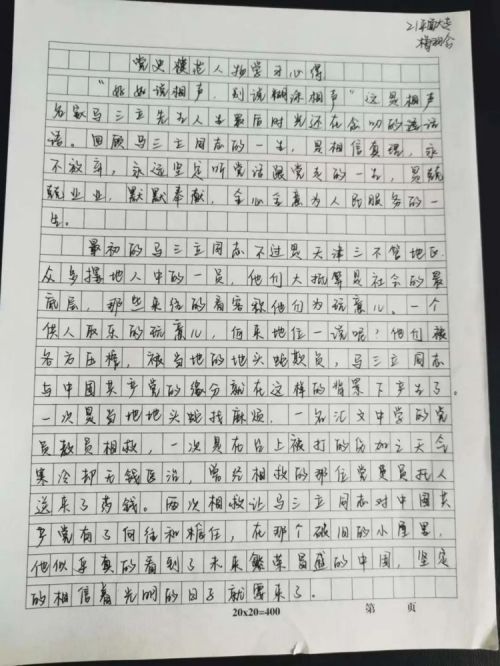 党史模范人物学习心得
"好好说相声，别说糊涂相声"这是相声
名家马三立先生人生最后时光还在念叨的遗话
语。回顾马三立同志的一生，是相信真理，永
不放弃，永远坚定听党话跟党走的一生，是兢
兢业业，默默奉献，全心全意为人民服务的一
生。
最初的马三立同志不过是天津三不管地区
众多撂地人中的一员，他们大抵算是社会的最
底层，那些来往的看客称他们为玩意儿。一个
供人取乐的玩意儿，何来地位一说呢？他们被
各方压榨，被当地的地头蛇欺负，马三立同志
与中国共产党的缘分就在这样的背景下产生了。
一次是当地地头蛇找麻烦，一名汇文中学的党
员教员相救，一次是在台上被打的伤加之天气
寒冷却无钱医治，曾经相救的那位党员员托人
送来了药钱。两次相救让马三立同志对中国共
产党有了向往和信任，在那个破旧的小屋里，
他似乎真的看到了未来繁荣昌盛的中国，坚定
的相信着光明的日子就要来了。
20x20=400
第 页